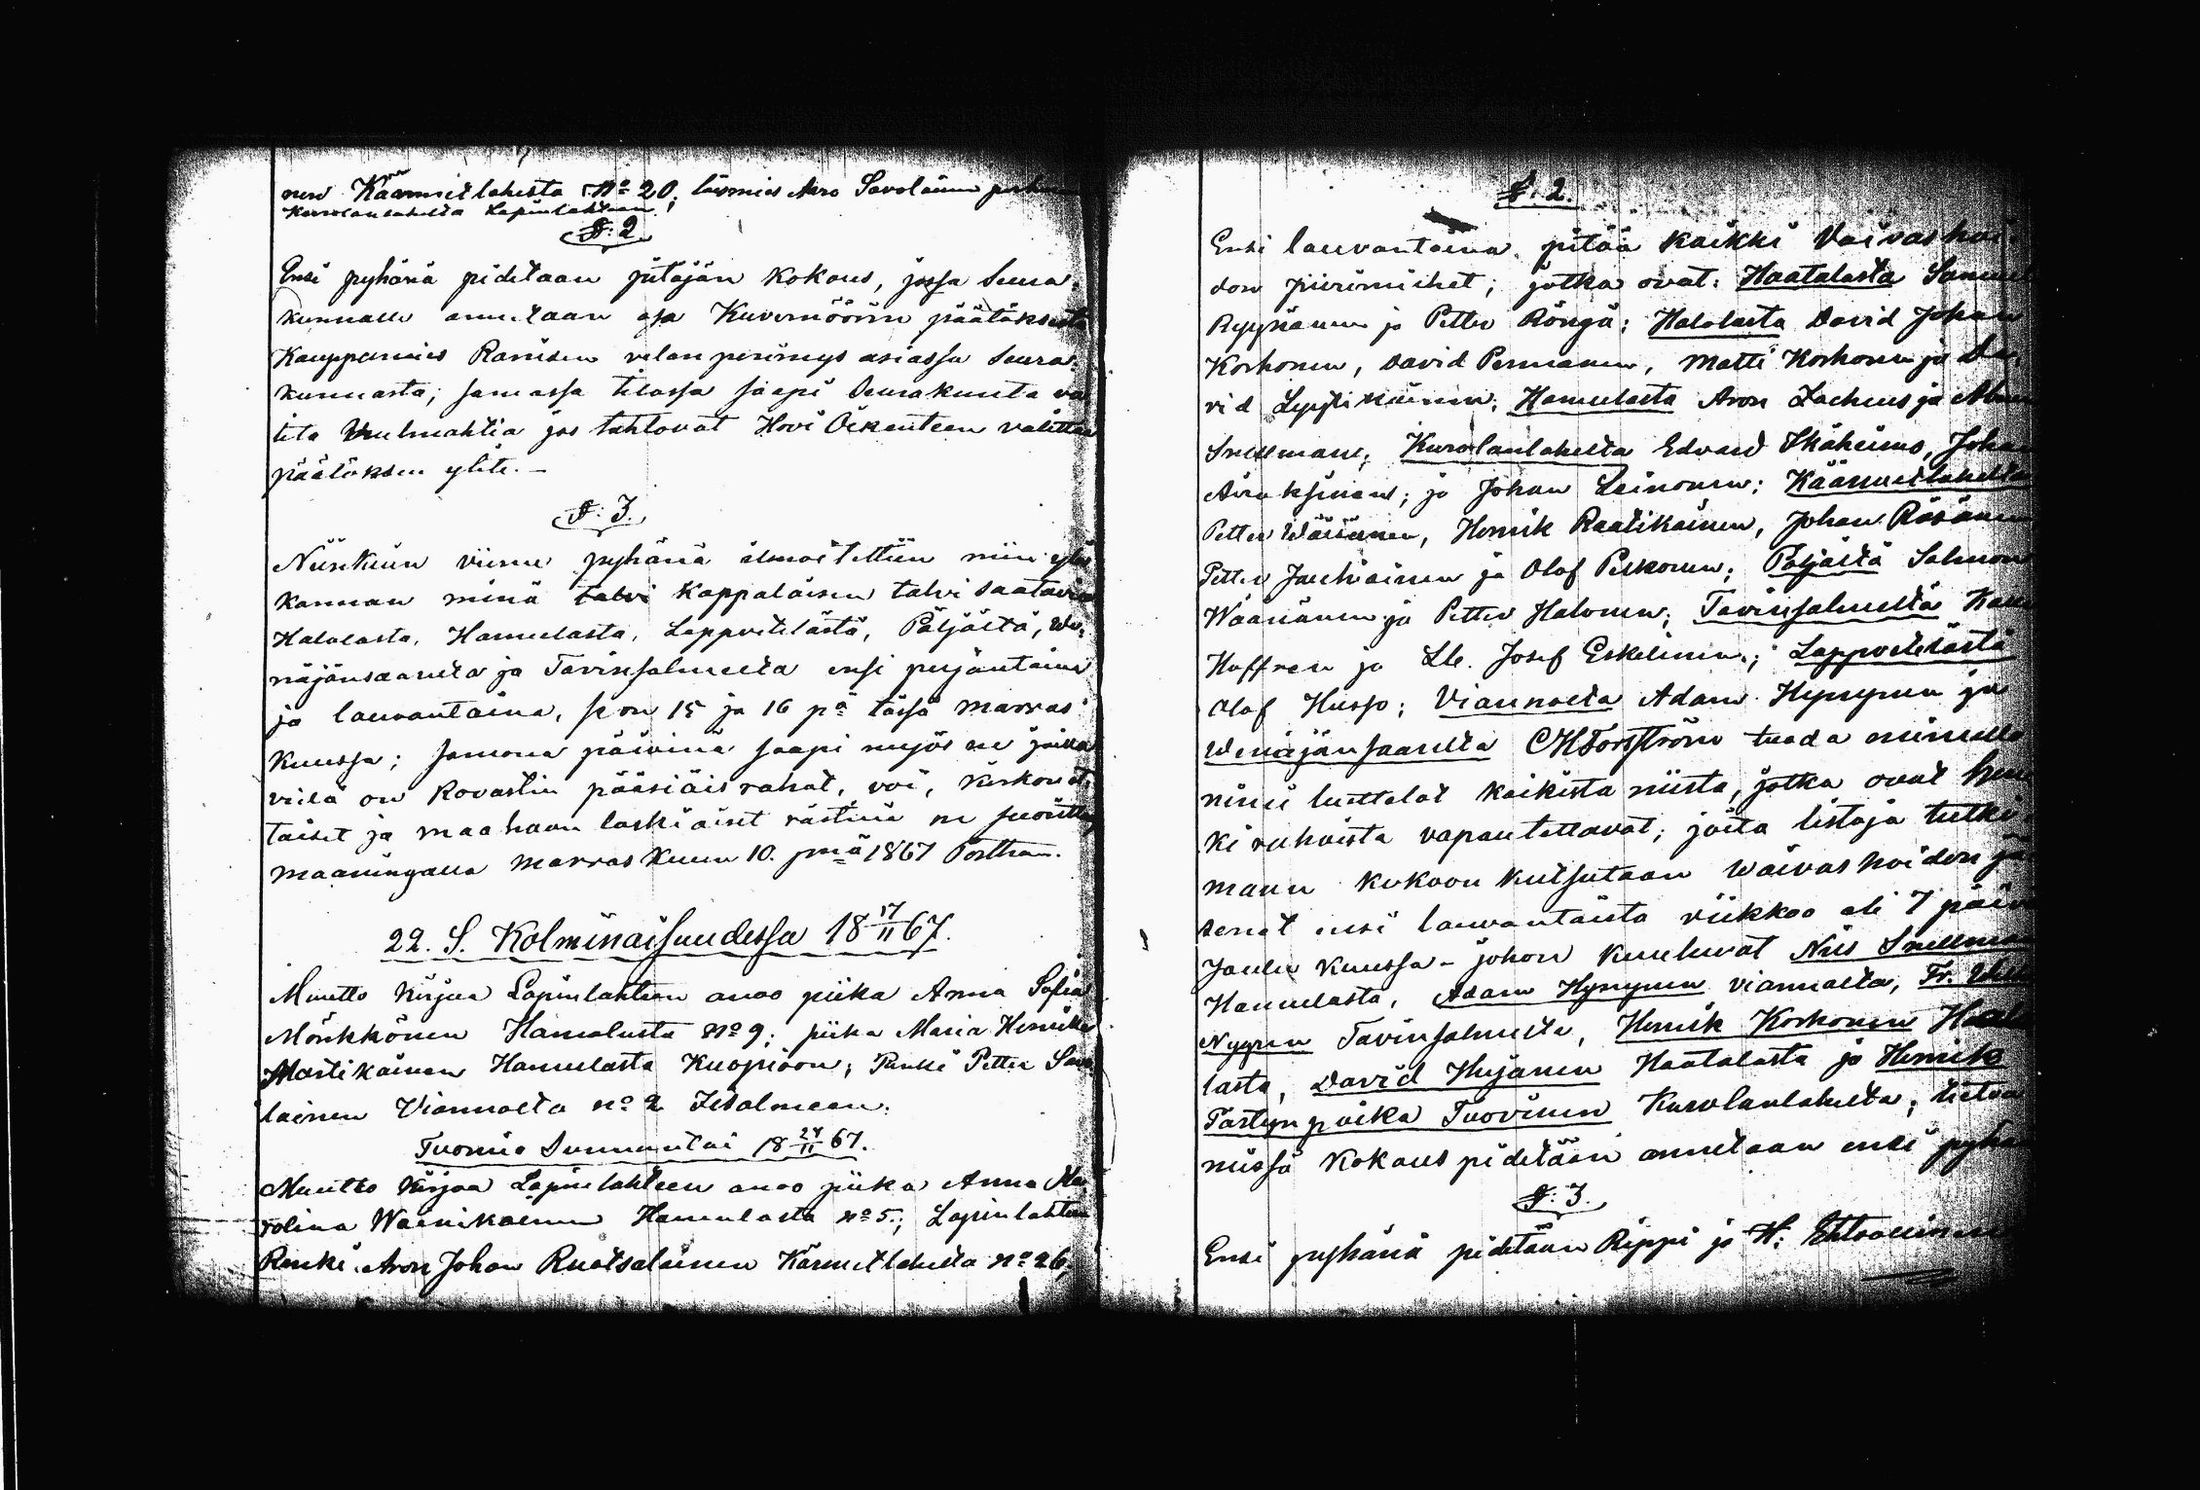 nen Käärmeitlahesta N:o 20; läsmies Aaro Savolainen
Kurolanlahelta Lapinlahteen;
§: 2.
Ensi pyhänä pidetaan pitäjän Kokous, jossa Seura-
kunnalle annetaan osa Kuvernöörin päätöksestä
Kauppamies Ranisen velan perimys asiassa Seura-
kunnasta; samassa tilassa saapi Seurakunta va-
lita jos tahtovat Hovi Oikeuteen valittaa
päätöksen ylite. –
§: 3.
Niinkuin viime pyhänä ilmoitettiin niin ylös
kannan minä talvi Kappalaisen talvi saatavia
Halolasta, Hamulasta, Leppoitelästä, Päljästä, We-
näjänsaarelta ja Tavinsalmelta ensi perjantaina
ja lauvantaina, se on 15 ja 16 pä tässä marras-
kuussa; samona päivinä saapi myös ne joilla
vielä on Rovastin pääsiäisrahat, voi,
taiset ja maahaan laskiaiset rästinä ne suorittaa
Maaningalla Marraskuun 10. pnä 1867 Porthan.
22. S. Kolminaisuudessa 18 17/11 67.
Muutto Kirjaa Lapinlahteen anoo piika Anna Sofia
Mönkkönen Hamulasta No 9; piika Maria Henrika
Martikainen Hamulasta Kuopioon; Renki Petter Savo-
lainen Viannalta no 2 Iisalmeen.
Tuomio Sunnuntai 18 24/11 67.
Muutto Kirjaa Lapinlahteen anoo piika Anna Ka-
rolina Wäänikäinen Hamulasta no 5.; Lapinlahteen
Renki Aron Johan Ruotsalainen Kärmeitlahelta no 26,
§: 2.
Ensi lauvantaina pitää kaikki Vaivashoi-
don piirimiehet; jotka ovat: Haatalasta Samuel
Ryynänen ja Petter Röngä; Halolasta David Johan
Korhonen, David Permanen, Matti Korhonen ja Da-
vid Lyytikäinen; Hamulasta Aron Zacheus ja
Snellmann; Kurolanlahelta Edvard Skäheims, Johan
ja Johan Leinonen; Käärmeitlahelta
Petter Wäisänen, Henrik Raatikainen, Johan Räsänen
Petter Jauhiainen ja Olof Pirkonen; Päljästä Salmon
Wäänänen ja Petter Halonen; Tavinsalmelta
Hoffren ja Lh. Josef Eskelinen; Leppoitelästä
Olof Husso; Viannalta Adam Hynynen ja
Wenäjänsaarelta CH Forsström tuoda minulle
nimi luettelot kaikista niistä, jotka ovat hen-
ki rahoista vapautettavat; joita listoja tutki-
maan kokoon kutsutaan Waivashoidon jä-
senet ensi lauvantaista viikkoo eli 7 päivä
Joulu kuussa – johon kuuluvat Nils Snellman
Hamulasta, Adam Hynynen Viannalta, Fr. Wilh.
Nygren Tavinsalmelta, Henrik Korhonen Halo-
lasta, David Hujanen Haatalasta ja Henrik
Tastynpoika Tuovinen Kurolanlahelta; tietoa
missä Kokous pidetään annetaan ensi pyhänä
§: 3.
Ensi pyhänä pidetään Rippi ja H: Ehtoollinen